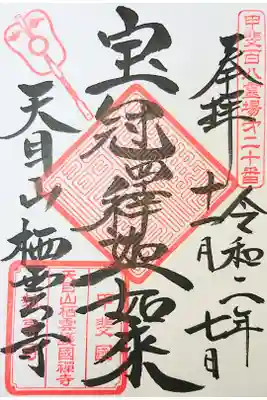 甲斐百八霊場第二十番
奉拝
令和二年
十一月七日
宝冠釋迦如来
天目山栖雲寺
甲斐國
天目山栖雲護國禅寺